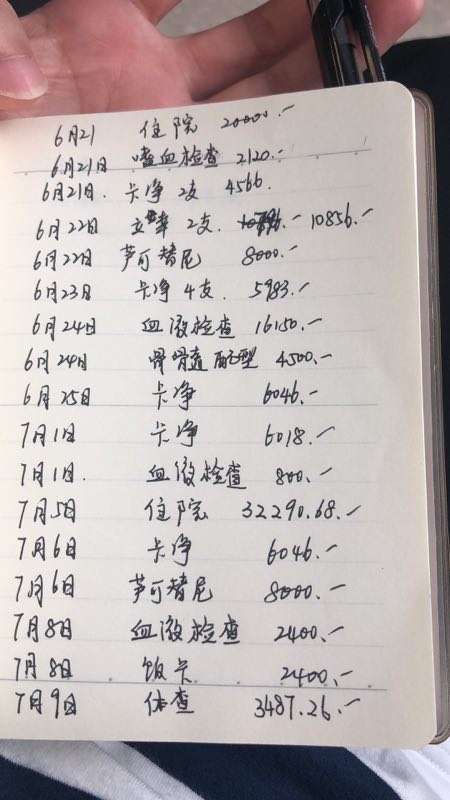 6月21 住院 20000.-
6月21日 嗜血检查 2120.-
6月21日. 卡净 2支 4566.
6月22日 立幸 2支 10856.-
6月22日 芦可替尼 8000.-
6月23日 卡净 4支. 5983.-
6月24日 血液检查 16150.-
6月24日 骨骨髓配型 4500.-
6月25日 卡净 6046.-
7月1日 卡净 6018.-
7月1日. 血液检查 800.-
7月5日 住院 32290.68.-
7月6日 卡净 6046.-
7月6日 芦可替尼 8000.-
7月8日 血液检查 2400.-
7月8日 饭卡 2400.-
7月9日 体查 3487.26.-